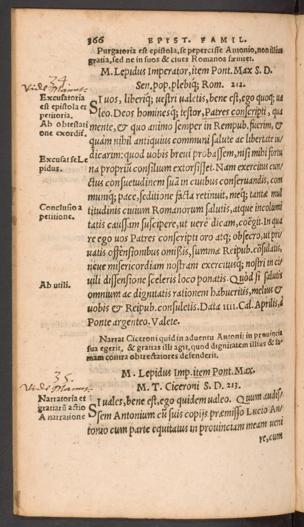 366 EPIST. FAMIL.
Purgatoria est epistola, se pepercisse Antonio, non illius
gratia, sed ne in suos & ciues Romanos sæuiret.
M. Lepidus Imperator, item Pont. Max S. D.
34
Sen. pop. plebiq; Rom. 212.
Excusatoria
est epistola et
petitoria.
Ab obtestati
one exordit'.
SI uos, liberiq; uestri ualetis, bene est, ego quoq; ua
leo. Deos hominesq; testor, Patres conscripti, qua
mente, & quo animo semper in Rempub. fuerim, &
quàm nihil antiquius communi salute ac libertate iu-
dicarim: quod uobis breui probassem, nisi mihi fortu
Excusat se Le
pidus.
na proprij consilium extorsisset. Nam exercitus cun-
ctus consuetudinem suã in ciuibus conseruandis, com
muniq; pace, seditione facta retinuit, meq; tantæ mul
Conclusio a
petitione.
titudinis ciuium Romanorum salutis, atque incolumi
tatis causam suscipere, ut uerè dicam, coëgit. In qua
re ego uos Patres conscripti oro atq; obsecro, ut pri-
uatis offensionibus omißis, summæ Reipub. cõsulatis,
neue misericordiam nostram exercitusq; nostri in ci-
uili dissensione sceleris loco ponatis. Quòd si salutis
Ab utili.
omnium ac dignitatis rationem habueritis, melius &
uobis & Reipub. consuletis. Data IIII. Cal. Aprilis, à
Ponte argenteo. Valete.
Narrat Ciceroni quid in aduentu Antonij in prouincia
sua egerit, & gratias illi agit, quod dignitatem illius & fa-
mam contra obtrectatores defenderit.
35.
M. Lepidus Imp. item Pont. Max.
M. T. Ciceroni S. D. 213.
Narratoria et
gratiarũ actio
A narratione
SI uales, bene est, ego quidem ualeo. Quum audis-
sem Antonium cũ suis copijs præmisso Lucio An-
tonio cum parte equitatus in prouinciam meam ueni
re, cum